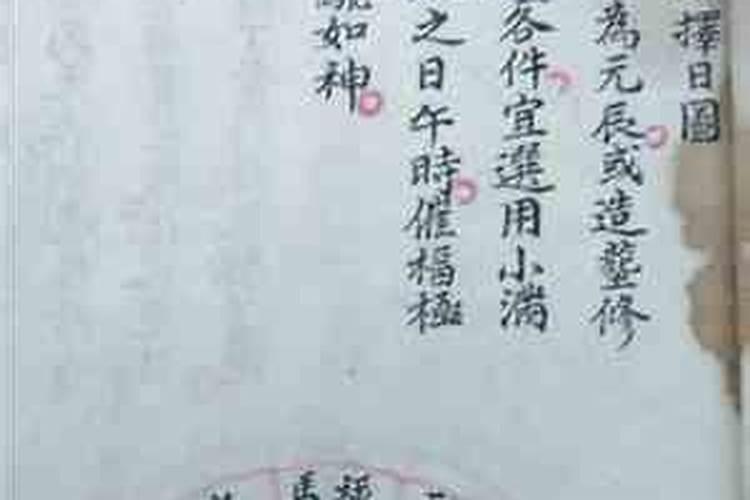 擇日圖
為元辰或造葬修
各件宜選用小滿
之日午時催福極
如神
馬